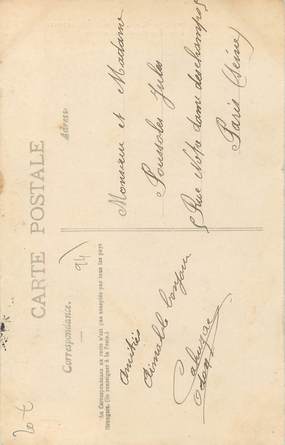 CARTE POSTALE
Correspondance.
Adresse
La Correspondance au recto n'est pas acceptée par tous les pays
étrangers. (Se renseigner à la Poste.)
94)
Amitiés
Aimable bonjour
Monsieur et Madame
Poussoles Jules
5 Rue Notre dame des champs 5
Paris (Seine)